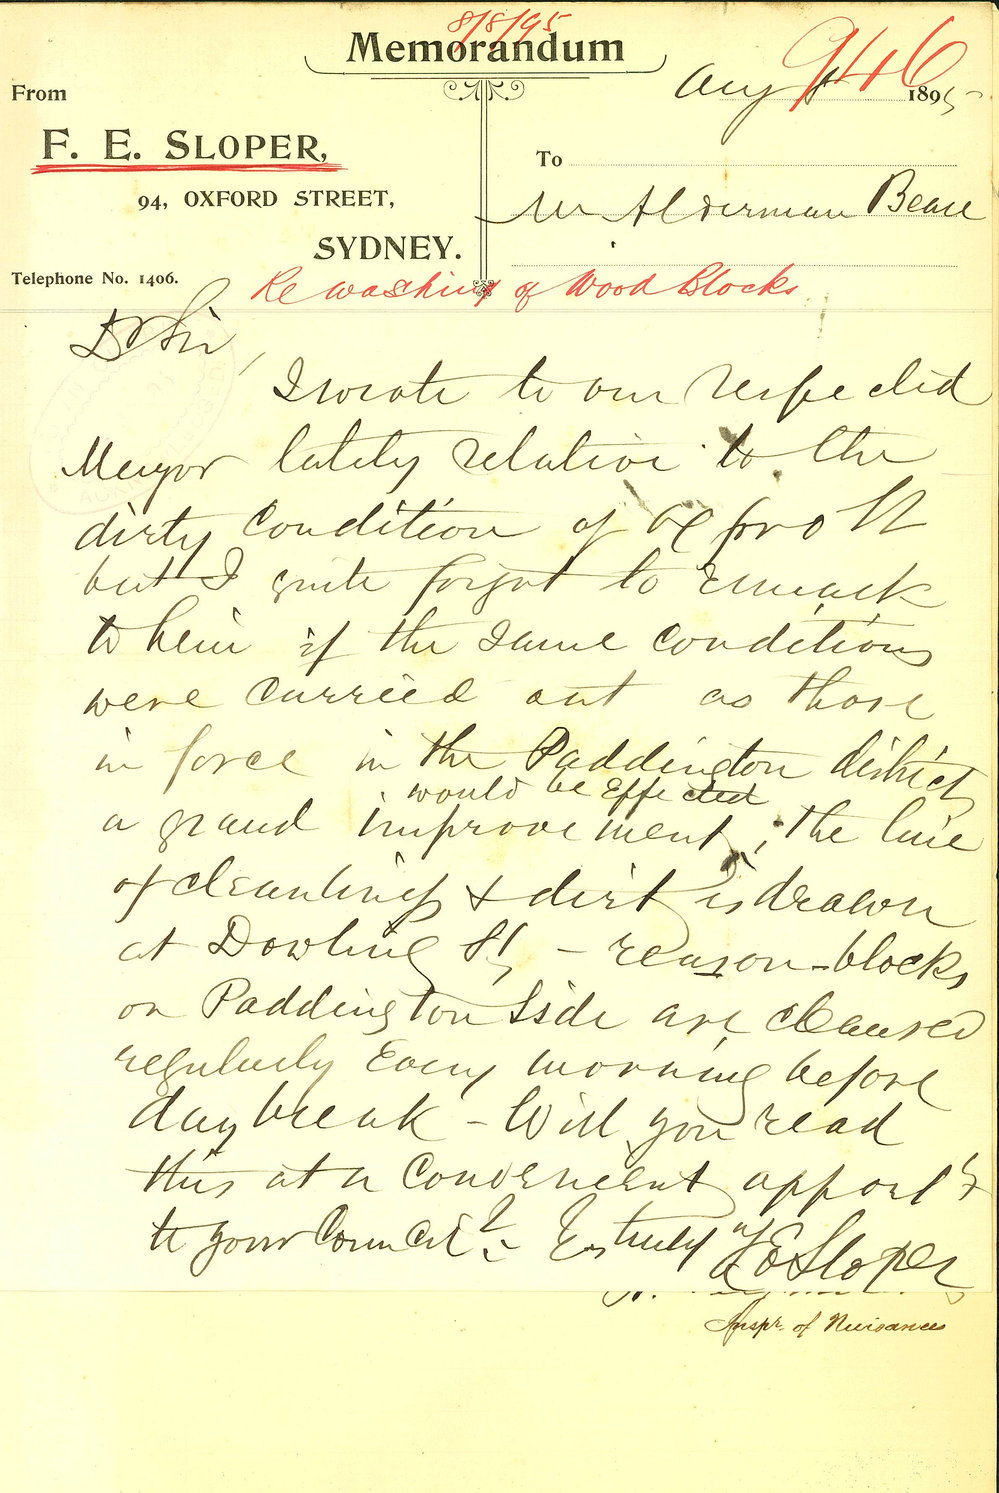 8/8/95
Memorandum
946
From
Aug 8 1895
F. E. SLOPER,
To
94, OXFORD STREET,
Mr Alderman Beare
SYDNEY.
Telephone No. 1406.
Re washing of Wood Blocks
D Sir,
I wrote to our respected
Mayor lately relative to the
dirty condition of Oxford St
but I quite forgot to remark
to him if the same conditions
were carried out as those
in force in the Paddington district
would be effected
a grand improvement; the line
of cleanliness & dirt is drawn
at Dowling St, - reason - blocks
on Paddington side are cleansed
regularly every morning before
daybreak - Will you read
this at a convenient opporty
to your Council? - Yrs truly
F E Sloper
Inspr. of Nuisances